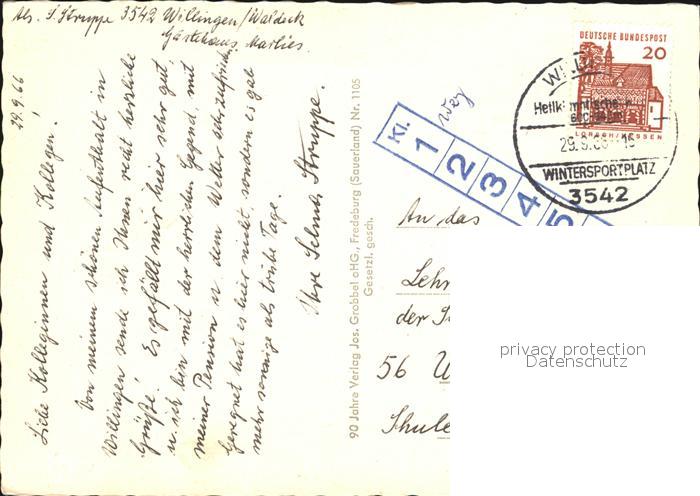 Abs. S. Struppe 3542 Willingen/Waldeck
Gästehaus Marlies.
29.9.66
Liebe Kolleginnen und Kollegen!
Von meinem schönen Aufenthalt in
Willingen sende ich Ihnen recht herzliche
Grüße! Es gefällt mir hier sehr gut,
u. ich bin mit der herrlichen Gegend, mit
meiner Pension u. dem Wetter sehr zufrieden.
Geregnet hat es hier nicht, sondern es gab
mehr sonnige als trübe Tage.
Ihre Selma Struppe.
90 Jahre Verlag Jos. Grobbel oHG., Fredeburg (Sauerland) Nr. 1105
Gesetzl. gesch.
DEUTSCHE BUNDESPOST
20
LORSCH/HESSEN
WINTERSPORTPLATZ
3542
Kl.
1
2
3
4
5
Weg
An das
Lehr
der
56 W
Schule
privacy protection
Datenschutz